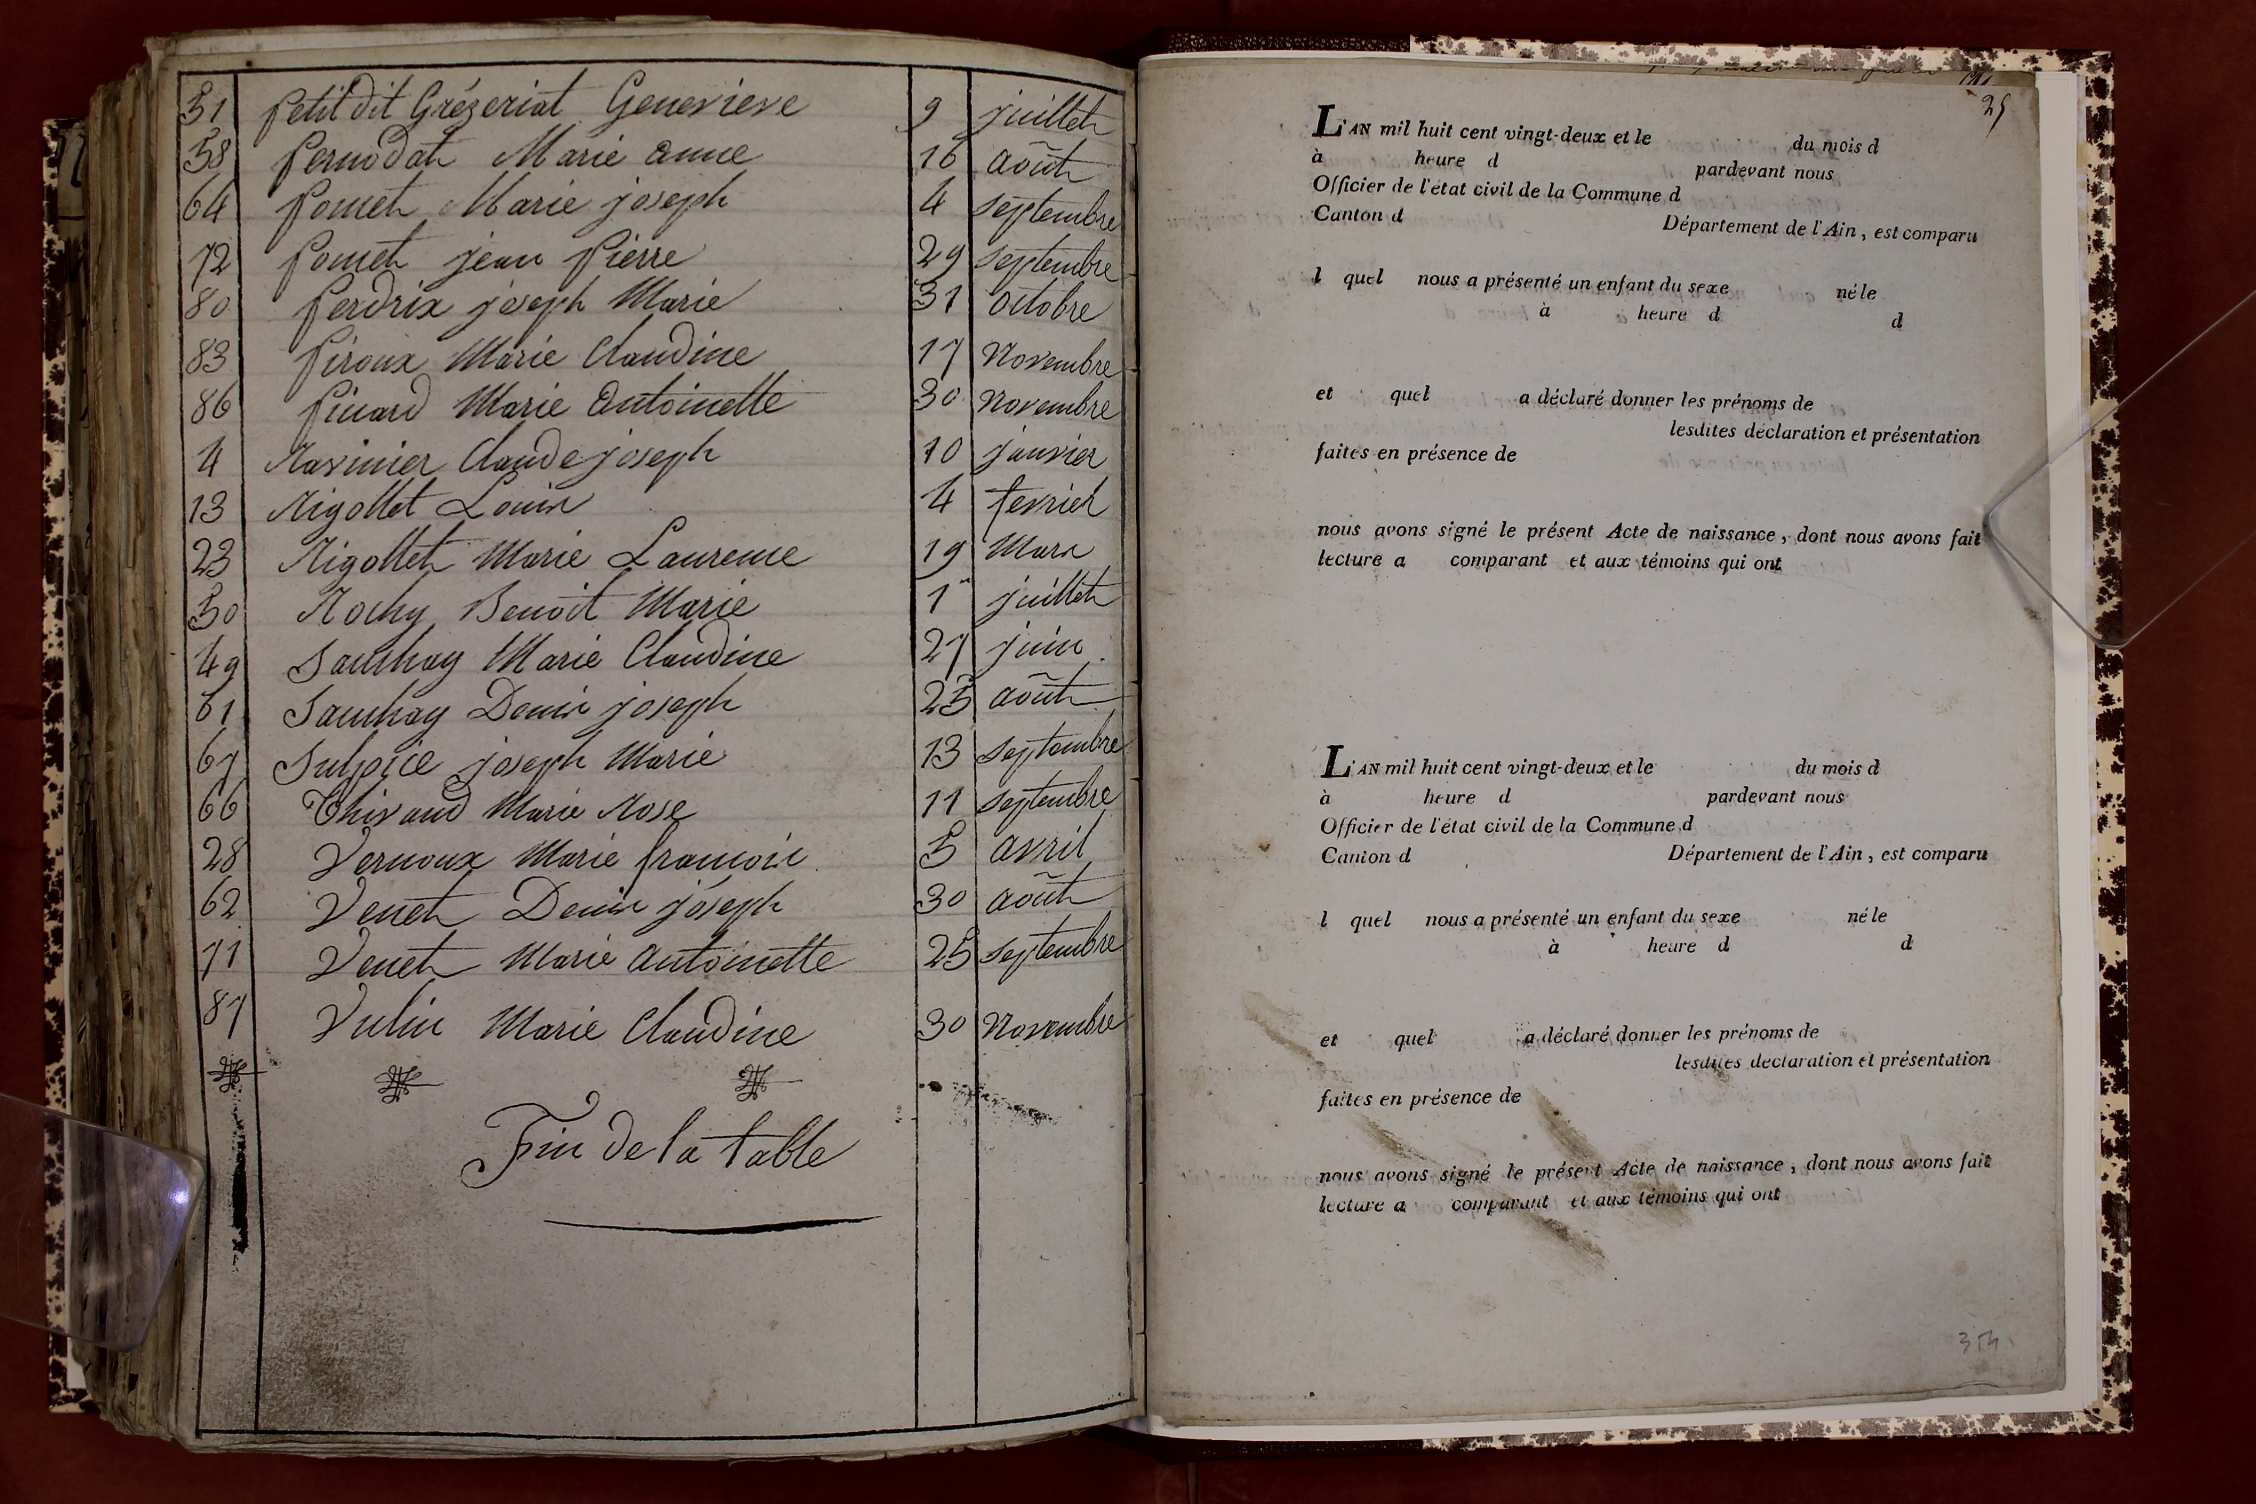 51 Petit dit Grézeriat Genevieve 9 juillet
58 Pernodat Marie Anne 16 août
64 Pomet Marie joseph 4 septembre
72 Pomet jean Pierre 29 septembre
80 Perdrix joseph Marie 31 octobre
83 Piroux Marie Claudine 17 Novembre
86 Pinard Marie Antoinette 30 Novembre
4 Ravinier Claude joseph 10 janvier
13 Rigollet Louis 4 fevrier
23 Rigollet Marie Laurence 19 Mars
50 Rochy Benoit Marie 1er juillet
49 Sauchay Marie Claudine 27 juin
61 Sauchay Denis joseph 25 août
67 Sulpice joseph Marie 13 septembre
66 Thivaud Marie Rose 11 septembre
28 Vernoux Marie françois 5 avril
62 Venet Denis joseph 30 août
71 Venet Marie Antoinette 25 septembre
87 Vulin Marie Claudine 30 Novembre
Fin de la table
25
L'AN mil huit cent vingt-deux et le du mois d
à heure d pardevant nous
Officier de l'état civil de la Commune d
Canton d Département de l'Ain, est comparu
l quel nous a présenté un enfant du sexe né le
à heure d d
et quel a déclaré donner les prénoms de
lesdites déclaration et présentation
faites en présence de
nous avons signé le présent Acte de naissance, dont nous avons fait
lecture a comparant et aux témoins qui ont
L'AN mil huit cent vingt-deux et le du mois d
à heure d pardevant nous
Officier de l'état civil de la Commune d
Canton d Département de l'Ain, est comparu
l quel nous a présenté un enfant du sexe né le
à heure d d
et quel a déclaré donner les prénoms de
lesdites déclaration et présentation
faites en présence de
nous avons signé le présent Acte de naissance, dont nous avons fait
lecture a comparant et aux témoins qui ont